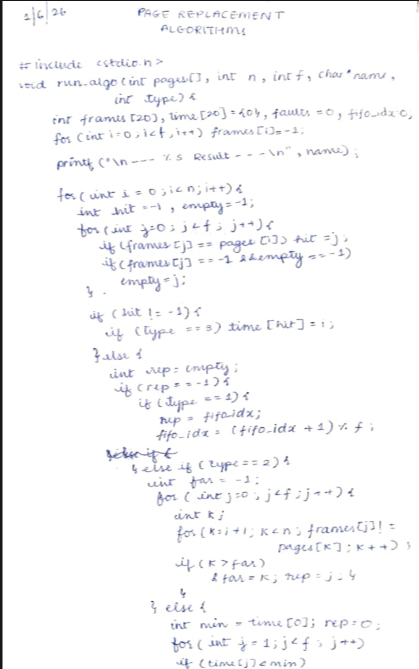 1/6/26
PAGE REPLACEMENT
ALGORITHMS
# include <stdio.h>
void run_algo (int pages[], int n, int f, char *name,
int type) {
int frames [20], time [20] = {0}, faults = 0, fifo_idx=0,
for (int i=0; i<f, i++) frames [i]=-1;
printf ("\n --- %s Result - - - \n", name);
for (int i = 0; i<n; i++) {
int hit = -1, empty=-1;
for (int j=0; j<f; j++) {
if (frames [j] == pages [i]) hit = j;
if (frames [j] == -1 && empty == -1)
empty=j;
}
if (hit != -1) {
if (type == 3) time [hit] = i;
} else {
int rep = empty;
if (rep == -1) {
if (type == 1) {
rep = fifo_idx;
fifo_idx = (fifo_idx + 1) % f;
} else if (type == 2) {
int far = -1;
for (int j=0; j<f; j++) {
int k;
for (k=i+1; k<n; frames[j] !=
pages[k]; k++);
if (k > far)
{ far = k; rep = j; }
}
} else {
int min = time [0]; rep=0;
for (int j = 1; j<f; j++)
if (time[j] < min)